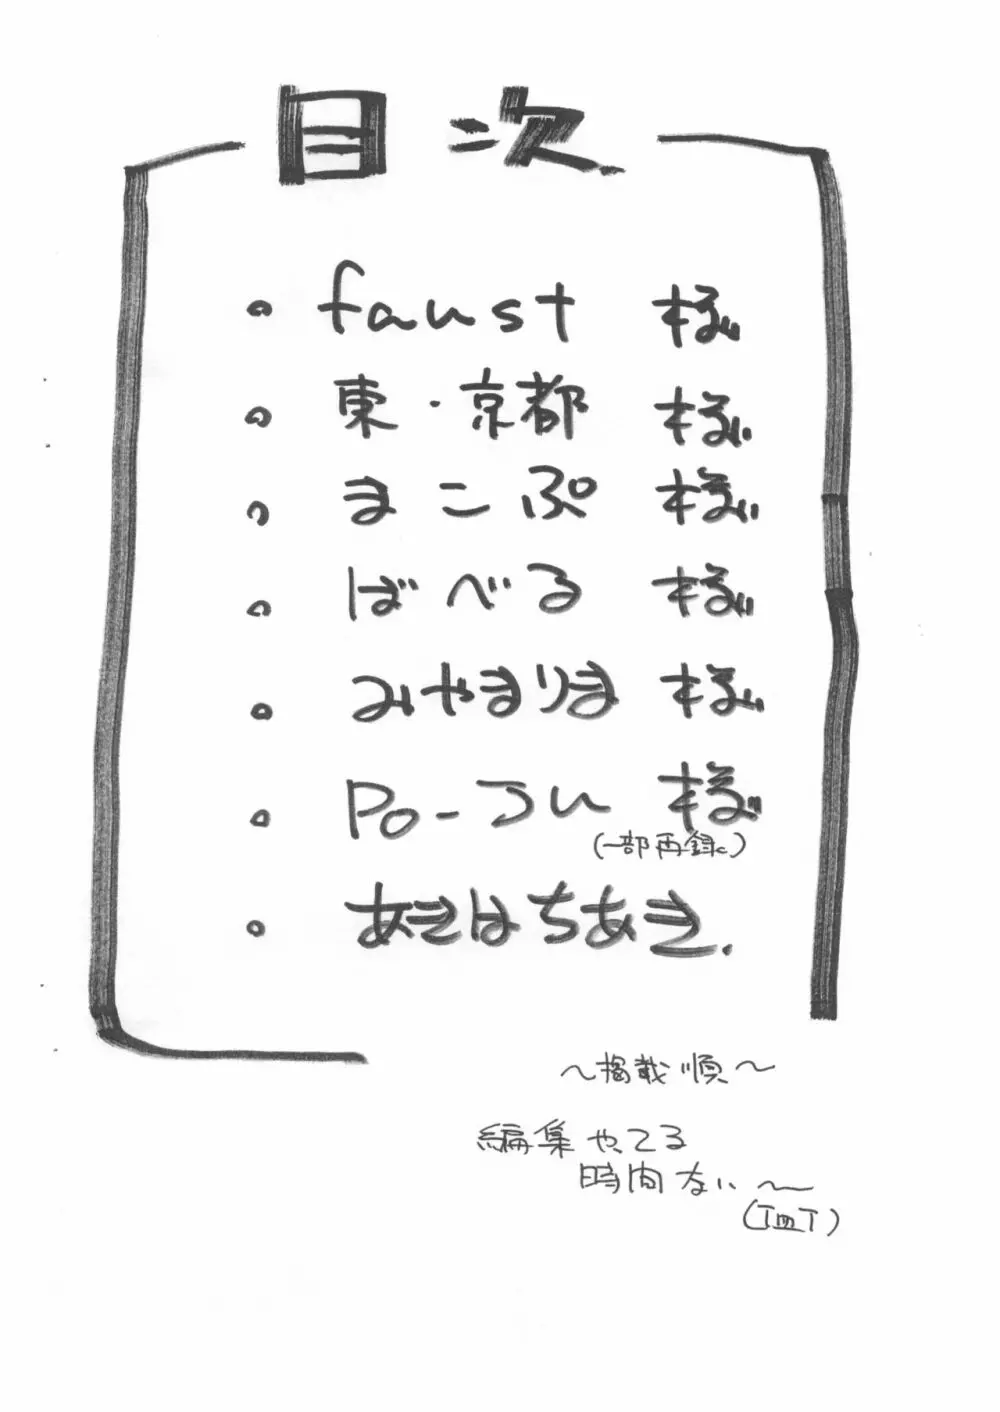 目次
。faust 様
。東・京都 様
。まこぷ 様
。ばべる 様
。みやまりま 様
。Po-じゅ 様
(一部再録)
。あきはちあき.
～掲載順～
編集やってる
時間ない～
(TmT)